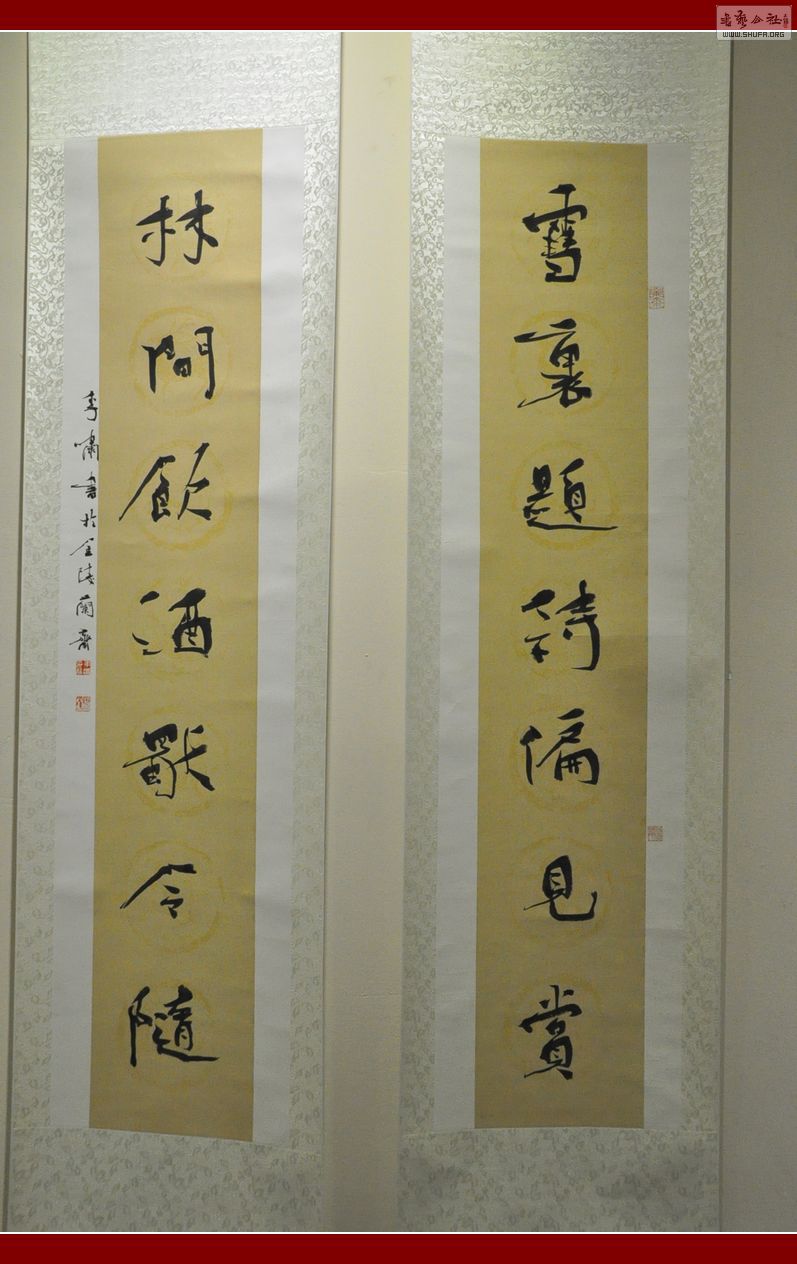 雪裏題詩偏見賞
林間飲酒獸令隨
李嘯書於金陵蘭齋
書藝公社
WWW.SHUFA.ORG